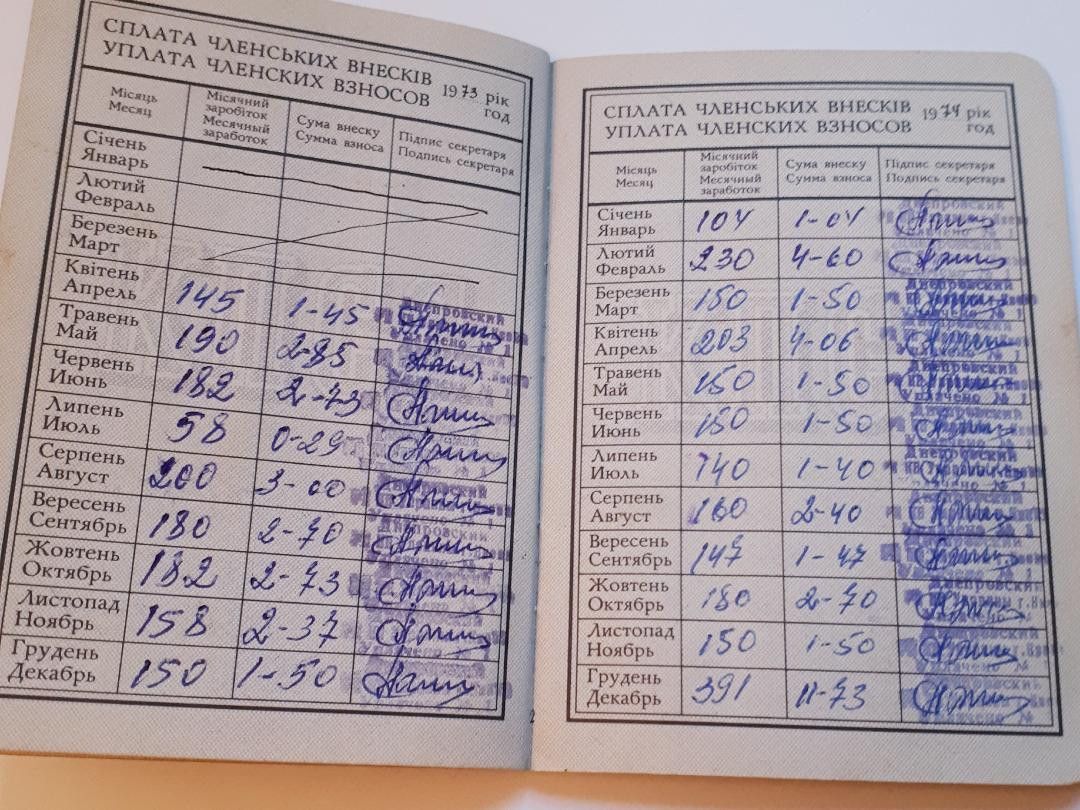 СПЛАТА ЧЛЕНСЬКИХ ВНЕСКІВ
УПЛАТА ЧЛЕНСКИХ ВЗНОСОВ
1973 рік
год
Місяць
Месяц
Місячний
заробіток
Месячный
заработок
Сума внеску
Сумма взноса
Підпис секретаря
Подпись секретаря
Січень
Январь
Лютий
Февраль
Березень
Март
Квітень
Апрель 145 1-45
Травень
Май 190 2-85
Червень
Июнь 182 2-73
Липень
Июль 58 0-29
Серпень
Август 200 3-00
Вересень
Сентябрь 180 2-70
Жовтень
Октябрь 182 2-73
Листопад
Ноябрь 158 2-37
Грудень
Декабрь 150 1-50
СПЛАТА ЧЛЕНСЬКИХ ВНЕСКІВ
УПЛАТА ЧЛЕНСКИХ ВЗНОСОВ
1974 рік
год
Місяць
Месяц
Місячний
заробіток
Месячный
заработок
Сума внеску
Сумма взноса
Підпис секретаря
Подпись секретаря
Січень
Январь 104 1-04
Днепровский
Лютий
Февраль 230 4-60
Березень
Март 150 1-50
Днепровский
Квітень
Апрель 203 4-06
Травень
Май 150 1-50
Днепровский
Уплачено № 1
Червень
Июнь 150 1-50
Липень
Июль 140 1-40
Днепровский
Уплачено № 1
Серпень
Август 160 2-40
Вересень
Сентябрь 147 1-47
Жовтень
Октябрь 180 2-70
Днепровский
Листопад
Ноябрь 150 1-50
Уплачено № 1
Грудень
Декабрь 391 11-73